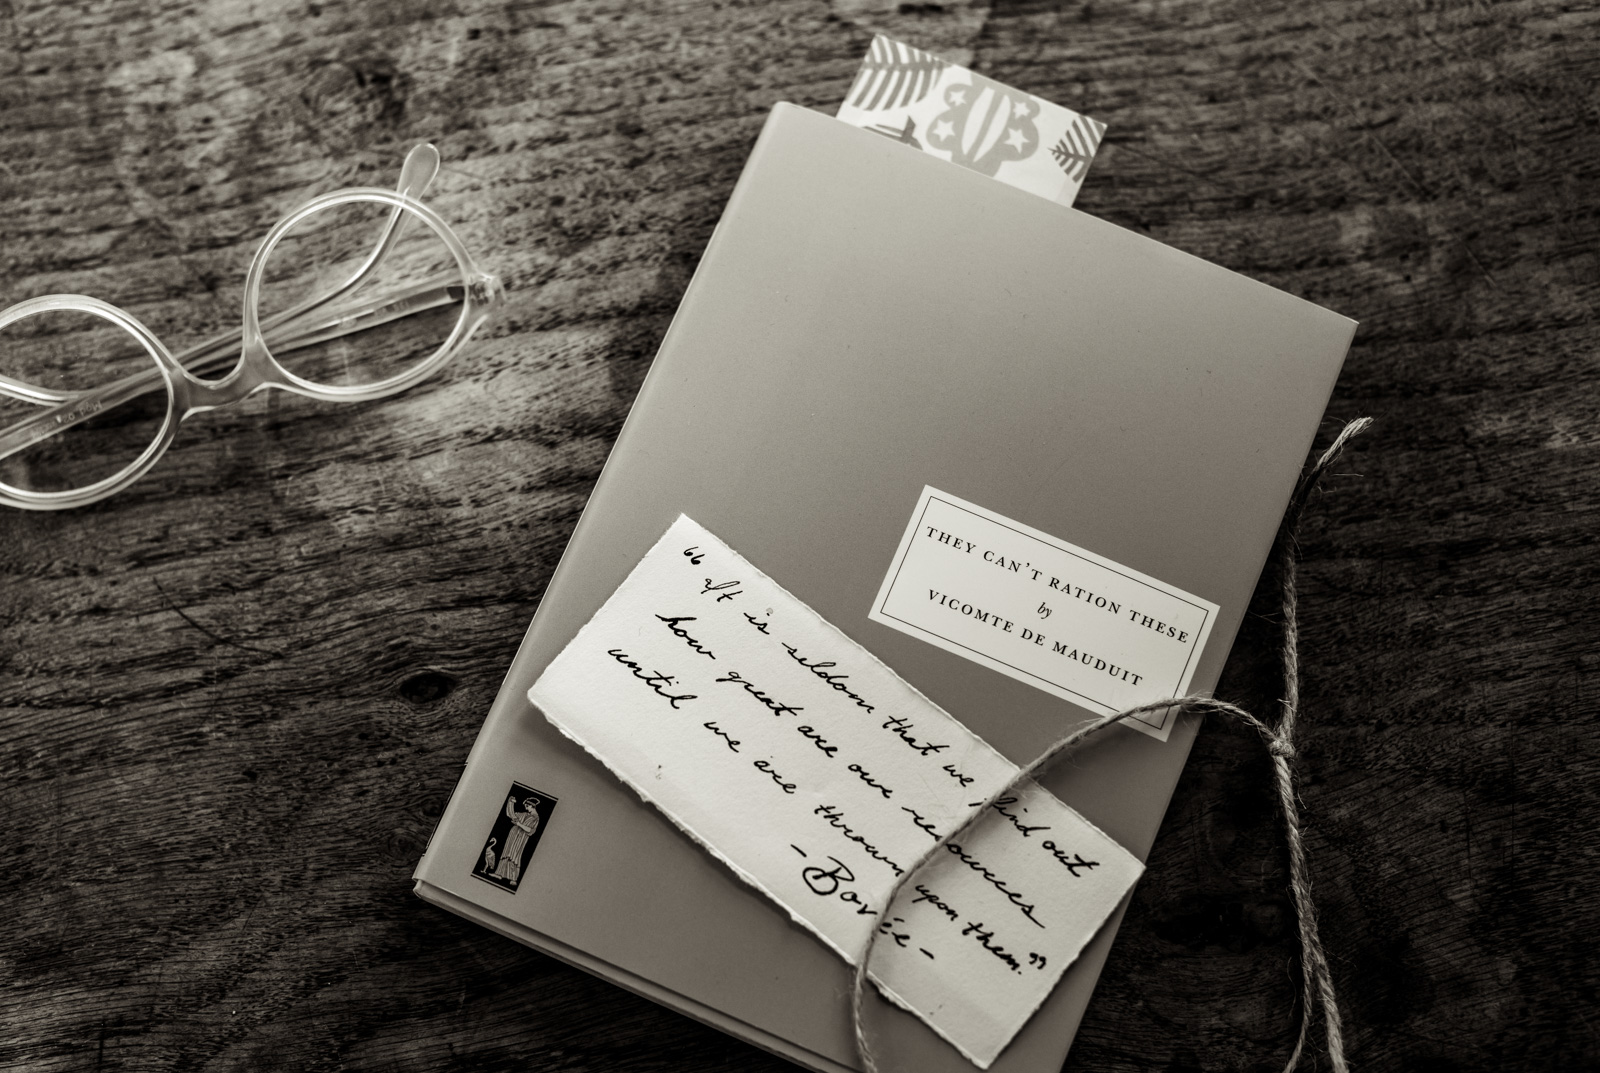 THEY CAN'T RATION THESE
by
VICOMTE DE MAUDUIT
"It is seldom that we find out
how great are our resources
until we are thrown upon them."
- Bovée -